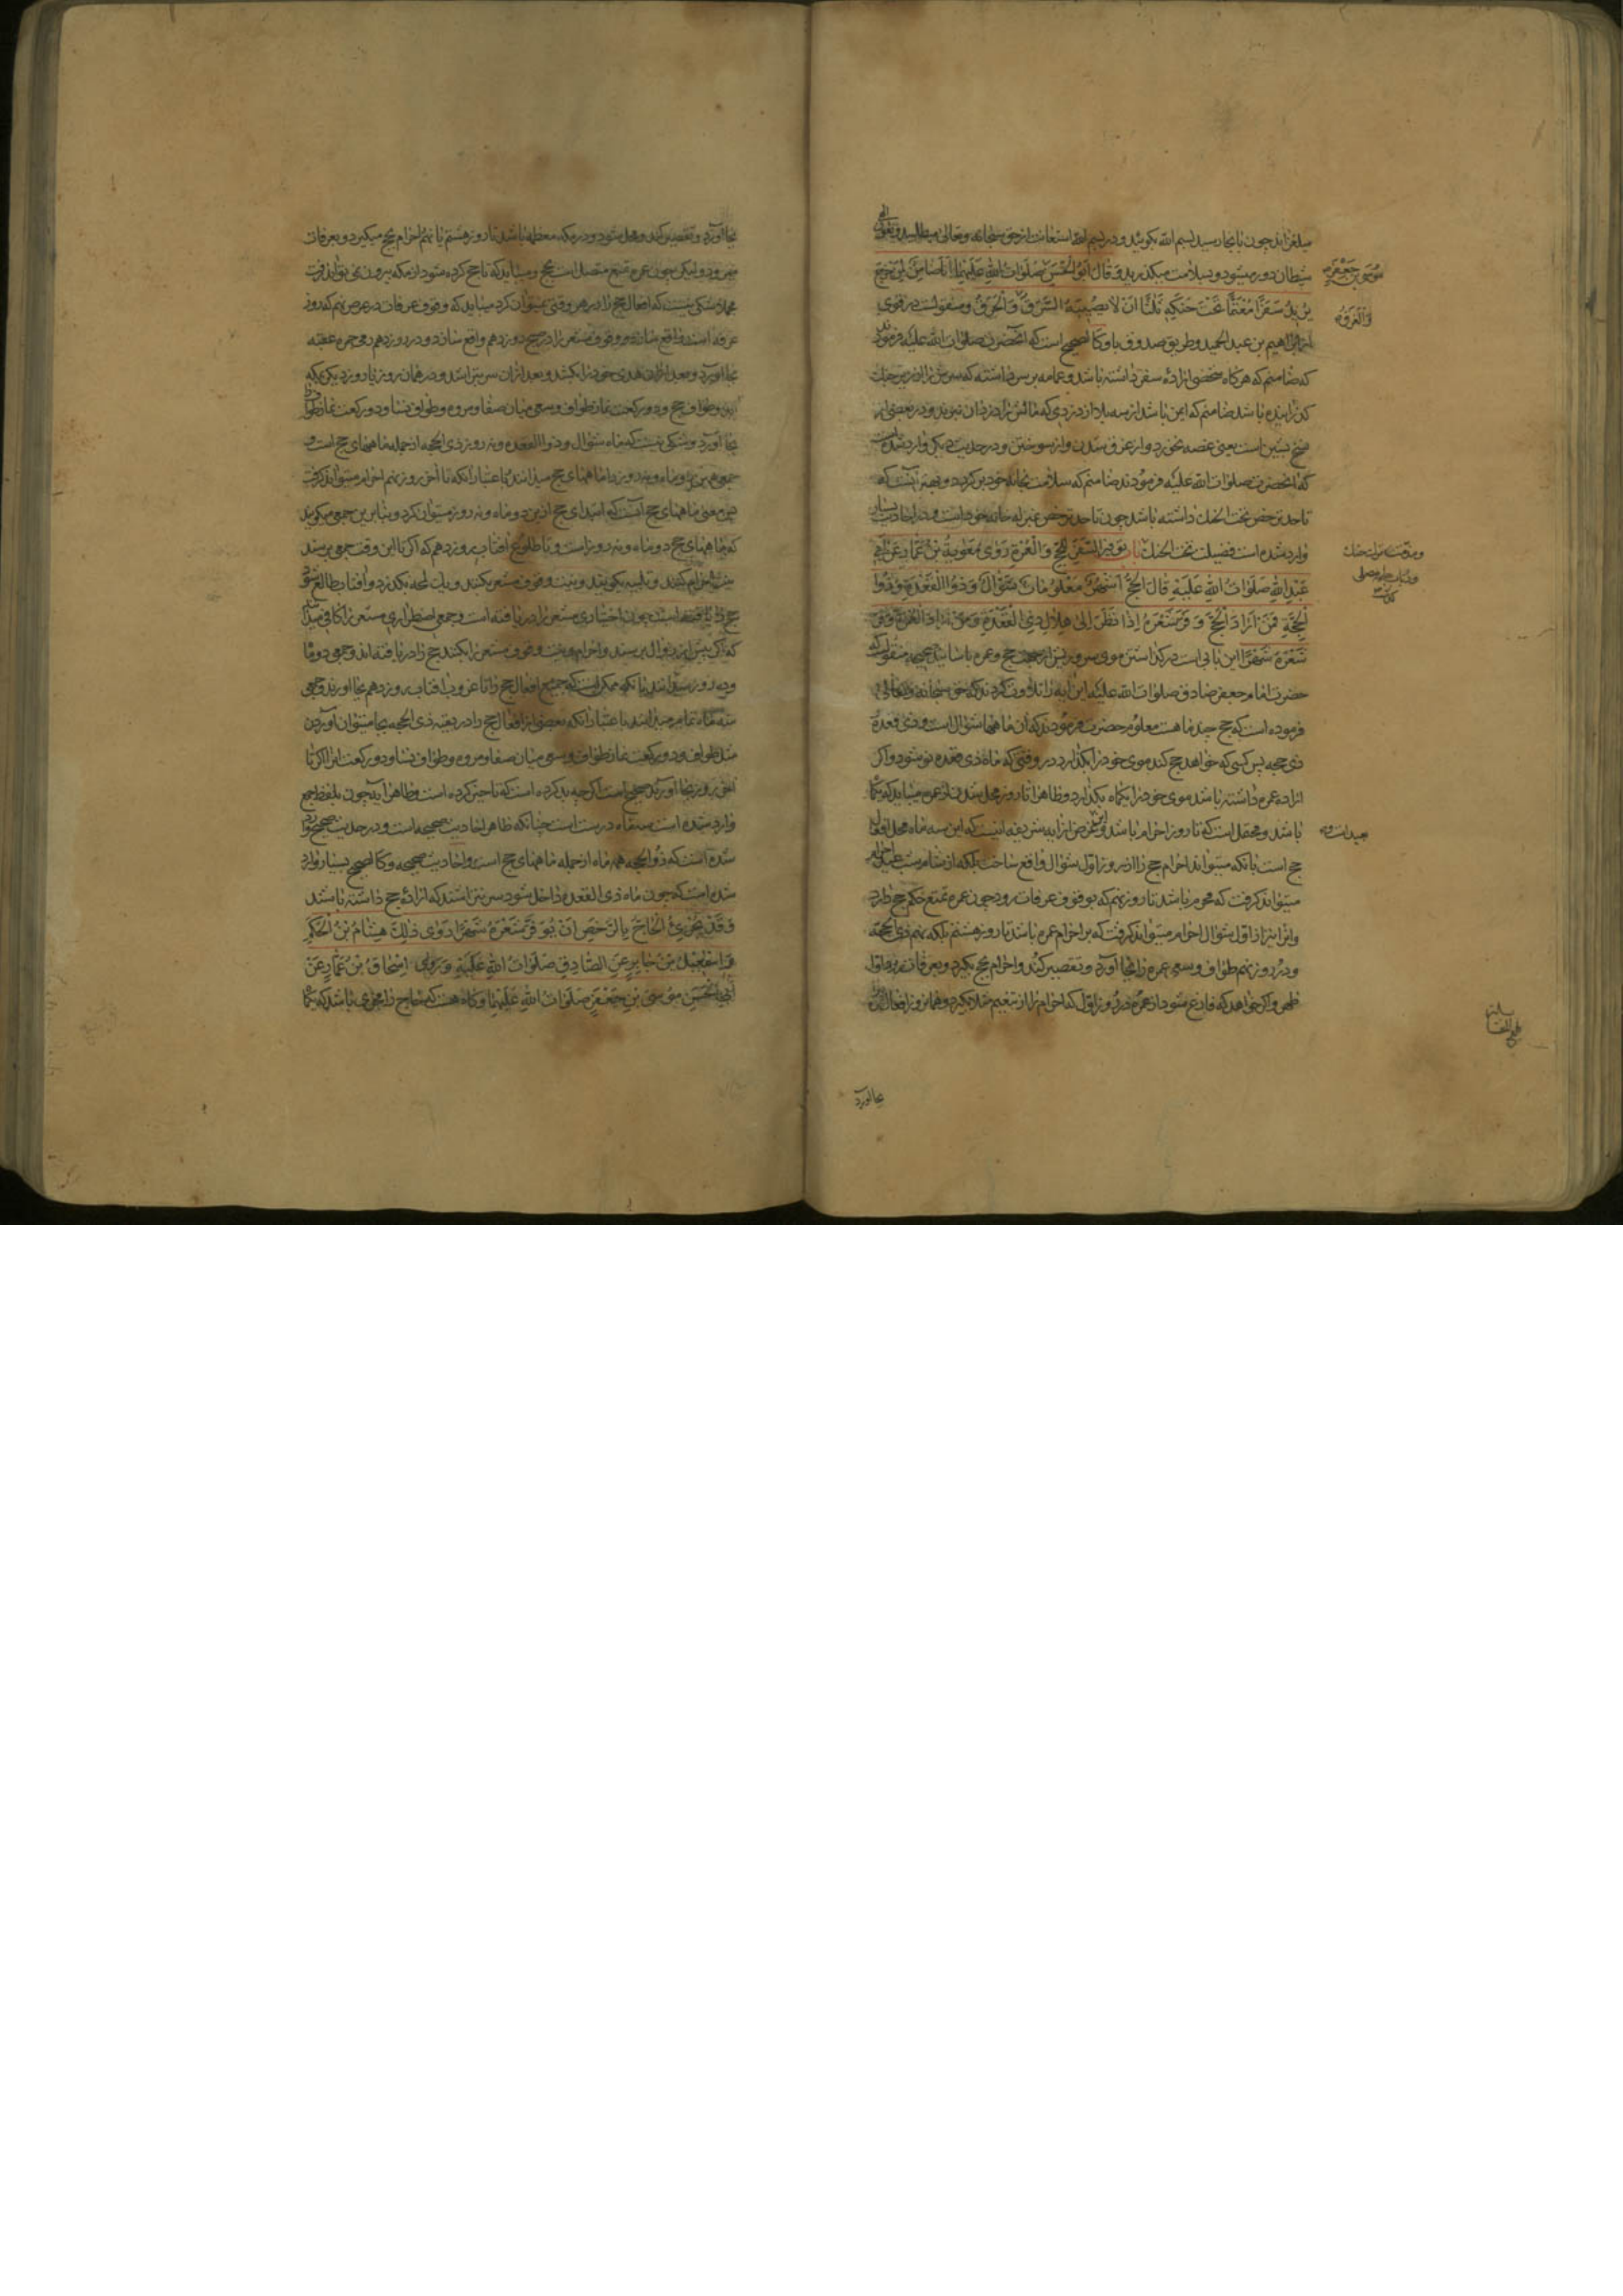 میلغزاند چون باینجا رسید بسم الله بگوئید و در بسم الله استعانت از حق سبحانه و تعالی
شیطان دور میشود و بسلامت میگذرید وَ قَالَ اَبُو الْحَسَنِ صَلَوَاتُ اللهِ عَلَیْهِمَا اَنَا ضَامِنٌ لِمَنْ خَرَجَ
موسی بن جعفر
یُرِیدُ سَفَرًا مُعْتَمًّا تَحْتَ حَنَکِهِ ثَلٰثًا اَنْ لَا یُصِیبَهُ السَّرَقُ وَ الْحَرَقُ و منقولست در قوی
وَالْغَرَقُ
از ابراهیم بن عبد الحمید و طریق صدوق باو کالصحیح است که آنحضرت صلوات الله علیه فرمودند
که ضامنم که هر گاه شخصی اراده سفر داشته باشد و عمامه بر سر داشته که سرش را از زیر حنک
گذرانیده باشد ضامنم که ایمن باشد از سه بلا از دزدی که مالش را دزدان نبرند و در بعضی از
نسخ بشین است یعنی غصه نخورد و از غرق شدن و از سوختن و در حدیث دیگر وارد شده است
که آنحضرت صلوات الله علیه فرمودند ضامنم که سلامت بخانه خود برگردد و بهتر آنست که
تا حد ترخص تحت الحنک داشته باشد چون تا حد ترخص بمنزله خانه خود است و در احادیث بسیار
وارد شده است فضیلت تحت الحنک بَابُ تَوْفِیرِ الشَّعْرِ لِلْحَجِّ وَ الْعُمْرَةِ رَوٰی مُعٰوِیَةُ بْنُ عَمَّارٍ عَنْ اَبِی
عَبْدِ اللهِ صَلَوَاتُ اللهِ عَلَیْهِ قَالَ الْحَجُّ اَشْهُرٌ مَعْلُومَاتٌ شَوَّالٌ وَ ذُو الْقَعْدَةِ وَ ذُو
الْحِجَّةِ فَمَنْ اَرَادَ الْحَجَّ وَفَّرَ شَعْرَهُ اِذَا نَظَرَ اِلٰی هِلَالِ ذِی الْقَعْدَةِ وَ مَنْ اَرَادَ الْعُمْرَةَ وَفَّرَ
شَعْرَهُ شَهْرًا این بابی است در گذاشتن موی سر و ریش از جهت حج و عمره باسانید صحیحه منقولست که
حضرت امام جعفر صادق صلوات الله علیه این آیه را تلاوت کردند که حق سبحانه و تعالی
فرموده است که حج چند ماهست معلوم حضرت فرمودند که آن ماهها شوال است و ذی قعده
ذی حجه پس کسی که خواهد حج کند موی خود را بگذارد در وقتی که ماه ذی قعده نو شود و اگر
اراده عمره داشته باشد موی خود را یکماه بگذارد و ظاهرا تا روز محل شدن از عمره میباید که یکماه
باشد و محتمل است که تا روز احرام باشد و غرض از آیه شریفه اینست که این سه ماه محل افعال
بعید است
حج است بآنکه میتواند احرام حج را از روز اول شوال واقع ساخت بلکه از شام شب عید احرام
میتواند گرفت که محرم باشد تا روز نهم که بوقوف عرفات رود چون عمره تمتع حکم حج دارد
و آنرا نیز از اول شوال احرام میتواند گرفت که بر احرام عمره باشد تا روز هشتم بلکه نهم ذی الحجه
و در روز نهم طواف و سعی عمره را بجا آورد و تقصیر کند و احرام بحج بگیرد و بعرفات رود تا
ظهر و اگر خواهد که فارغ شود از عمره در روز اول که احرام را از تنعیم مثلا بگیرد و همانروز افعال
بجا آورد
بجا آورد و تقصیر کند و محل شود و در مکه معظمه باشد تا روز هشتم یا نهم احرام بحج میگیرد و بعرفات
میرود و لیکن چون عمره تمتع متصل است بحج و میباید که تا حج کرده نشود از مکه بیرون نمیتواند رفت
مجملا شکی نیست که افعال حج را در هر وقتی نمیتوان کرد میباید که وقوف عرفات در عرض نهم که روز
عرفه است واقع سازد و وقوف مشعر را در صبح روز دهم واقع سازد و در روز دهم رمی جمره عقبه
بجا آورد و بعد از آن هدی خود را بکشد و بعد از آن سر بتراشد و در همان روز یا روز دیگر بمکه
آید و طواف حج و دو رکعت نماز طواف و سعی میان صفا و مروه و طواف نسا و دو رکعت نماز طواف
بجا آورد و شکی نیست که ماه شوال و ذو القعده و نه روز ذی الحجه از جمله ماههای حج است و
جمعی همین دو ماه و نه روز را ماههای حج میدانند باعتبار آنکه تا آخر روز نهم احرام میتواند گرفت
پس معنی ماههای حج آنست که ابتدای حج از این دو ماه و نه روز میتوان کرد و بنابرین جمعی میگویند
که ماههای حج دو ماه و نه روز است و تا طلوع آفتاب روز دهم که اگر تا این وقت جمعی برسند
نیت احرام کنند و تلبیه بگویند و نیت وقوف مشعر بکنند و یک لحظه بگذرد و آفتاب طالع شود
حج را یافته است چون اختیاری مشعر را دریافته است و جمعی اضطراری مشعر را کافی میدانند
که اگر پیش از زوال برسند و احرام و نیت وقوف مشعر را بکنند حج را دریافته اند و جمعی دو ماه
و ده روز میدانند بآنکه ممکن است که جمیع افعال حج را تا غروب آفتاب روز دهم بجا آورند و جمعی
سه ماه تمام میدانند باعتبار آنکه بعضی از افعال حج را در بقیه ذی الحجه بجا میتوان آوردن
مثل طواف و دو رکعت نماز طواف و سعی میان صفا و مروه و طواف نسا و دو رکعت آنرا اگر تا
آخر روز بجا آورند صحیح است اگرچه بد کرده است که تاخیر کرده است و ظاهر آیه چون بلفظ جمع
وارد شده است سه ماه درست است چنانکه ظاهر احادیث صحیحه است و در حدیث صحیح وارد
شده است که ذو الحجه همه ماه از جمله ماههای حج است و احادیث صحیحه و کالصحیح بسیار وارد
شده است که چون ماه ذی القعده داخل شود سر نتراشند که اراده حج داشته باشند
وَ قَدْ یُجْزِئُ الْحَاجَّ بِالرُّخَصِ اَنْ یُوَفِّرَ شَعْرَهُ شَهْرًا رَوٰی ذٰلِکَ هِشَامُ بْنُ الْحَکَمِ
وَ اِسْمٰعِیلُ بْنُ جَابِرٍ عَنِ الصَّادِقِ صَلَوَاتُ اللهِ عَلَیْهِ وَ رَوٰی اِسْحَاقُ بْنُ عَمَّارٍ عَنْ
اَبِی الْحَسَنِ مُوسَی بْنِ جَعْفَرٍ صَلَوَاتُ اللهِ عَلَیْهِمَا و گاه هست که حاج را مجزی باشد که یکماه